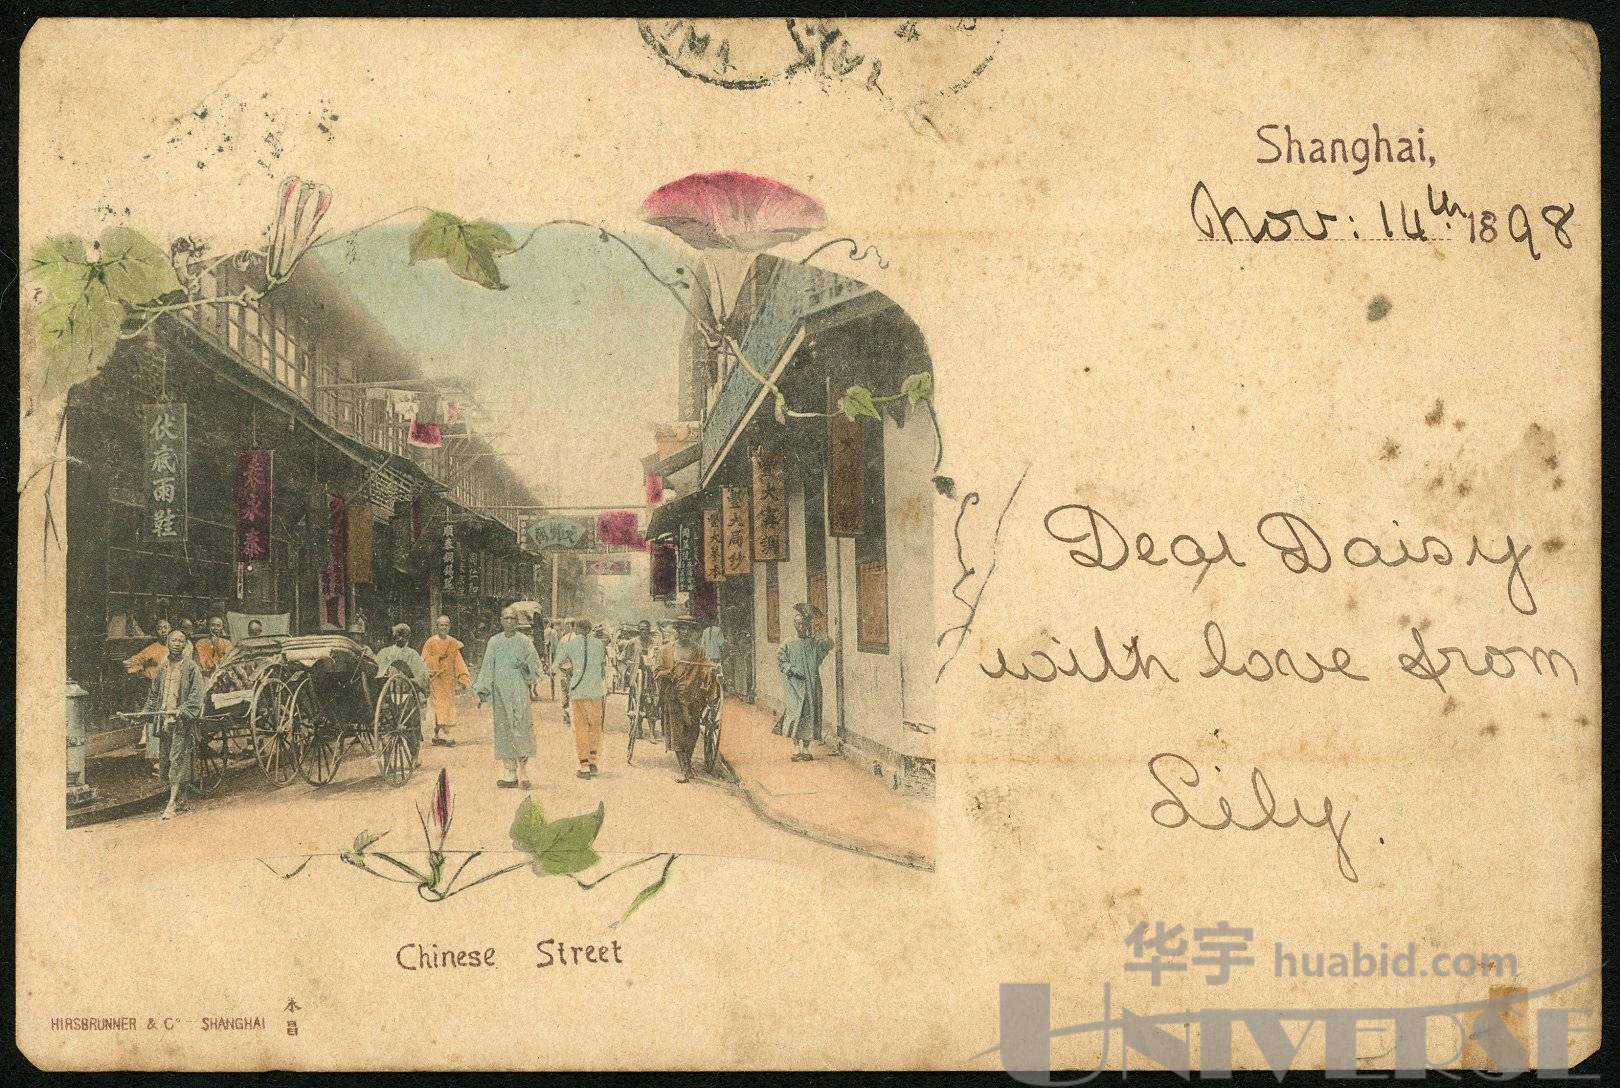 Shanghai,
Nov: 14th 1898
伏底雨鞋
泰永泰
Dear Daisy
with love from
Lily.
Chinese Street
HIRSBRUNNER & Co SHANGHAI
华宇 huabid.com
UNIVERSE